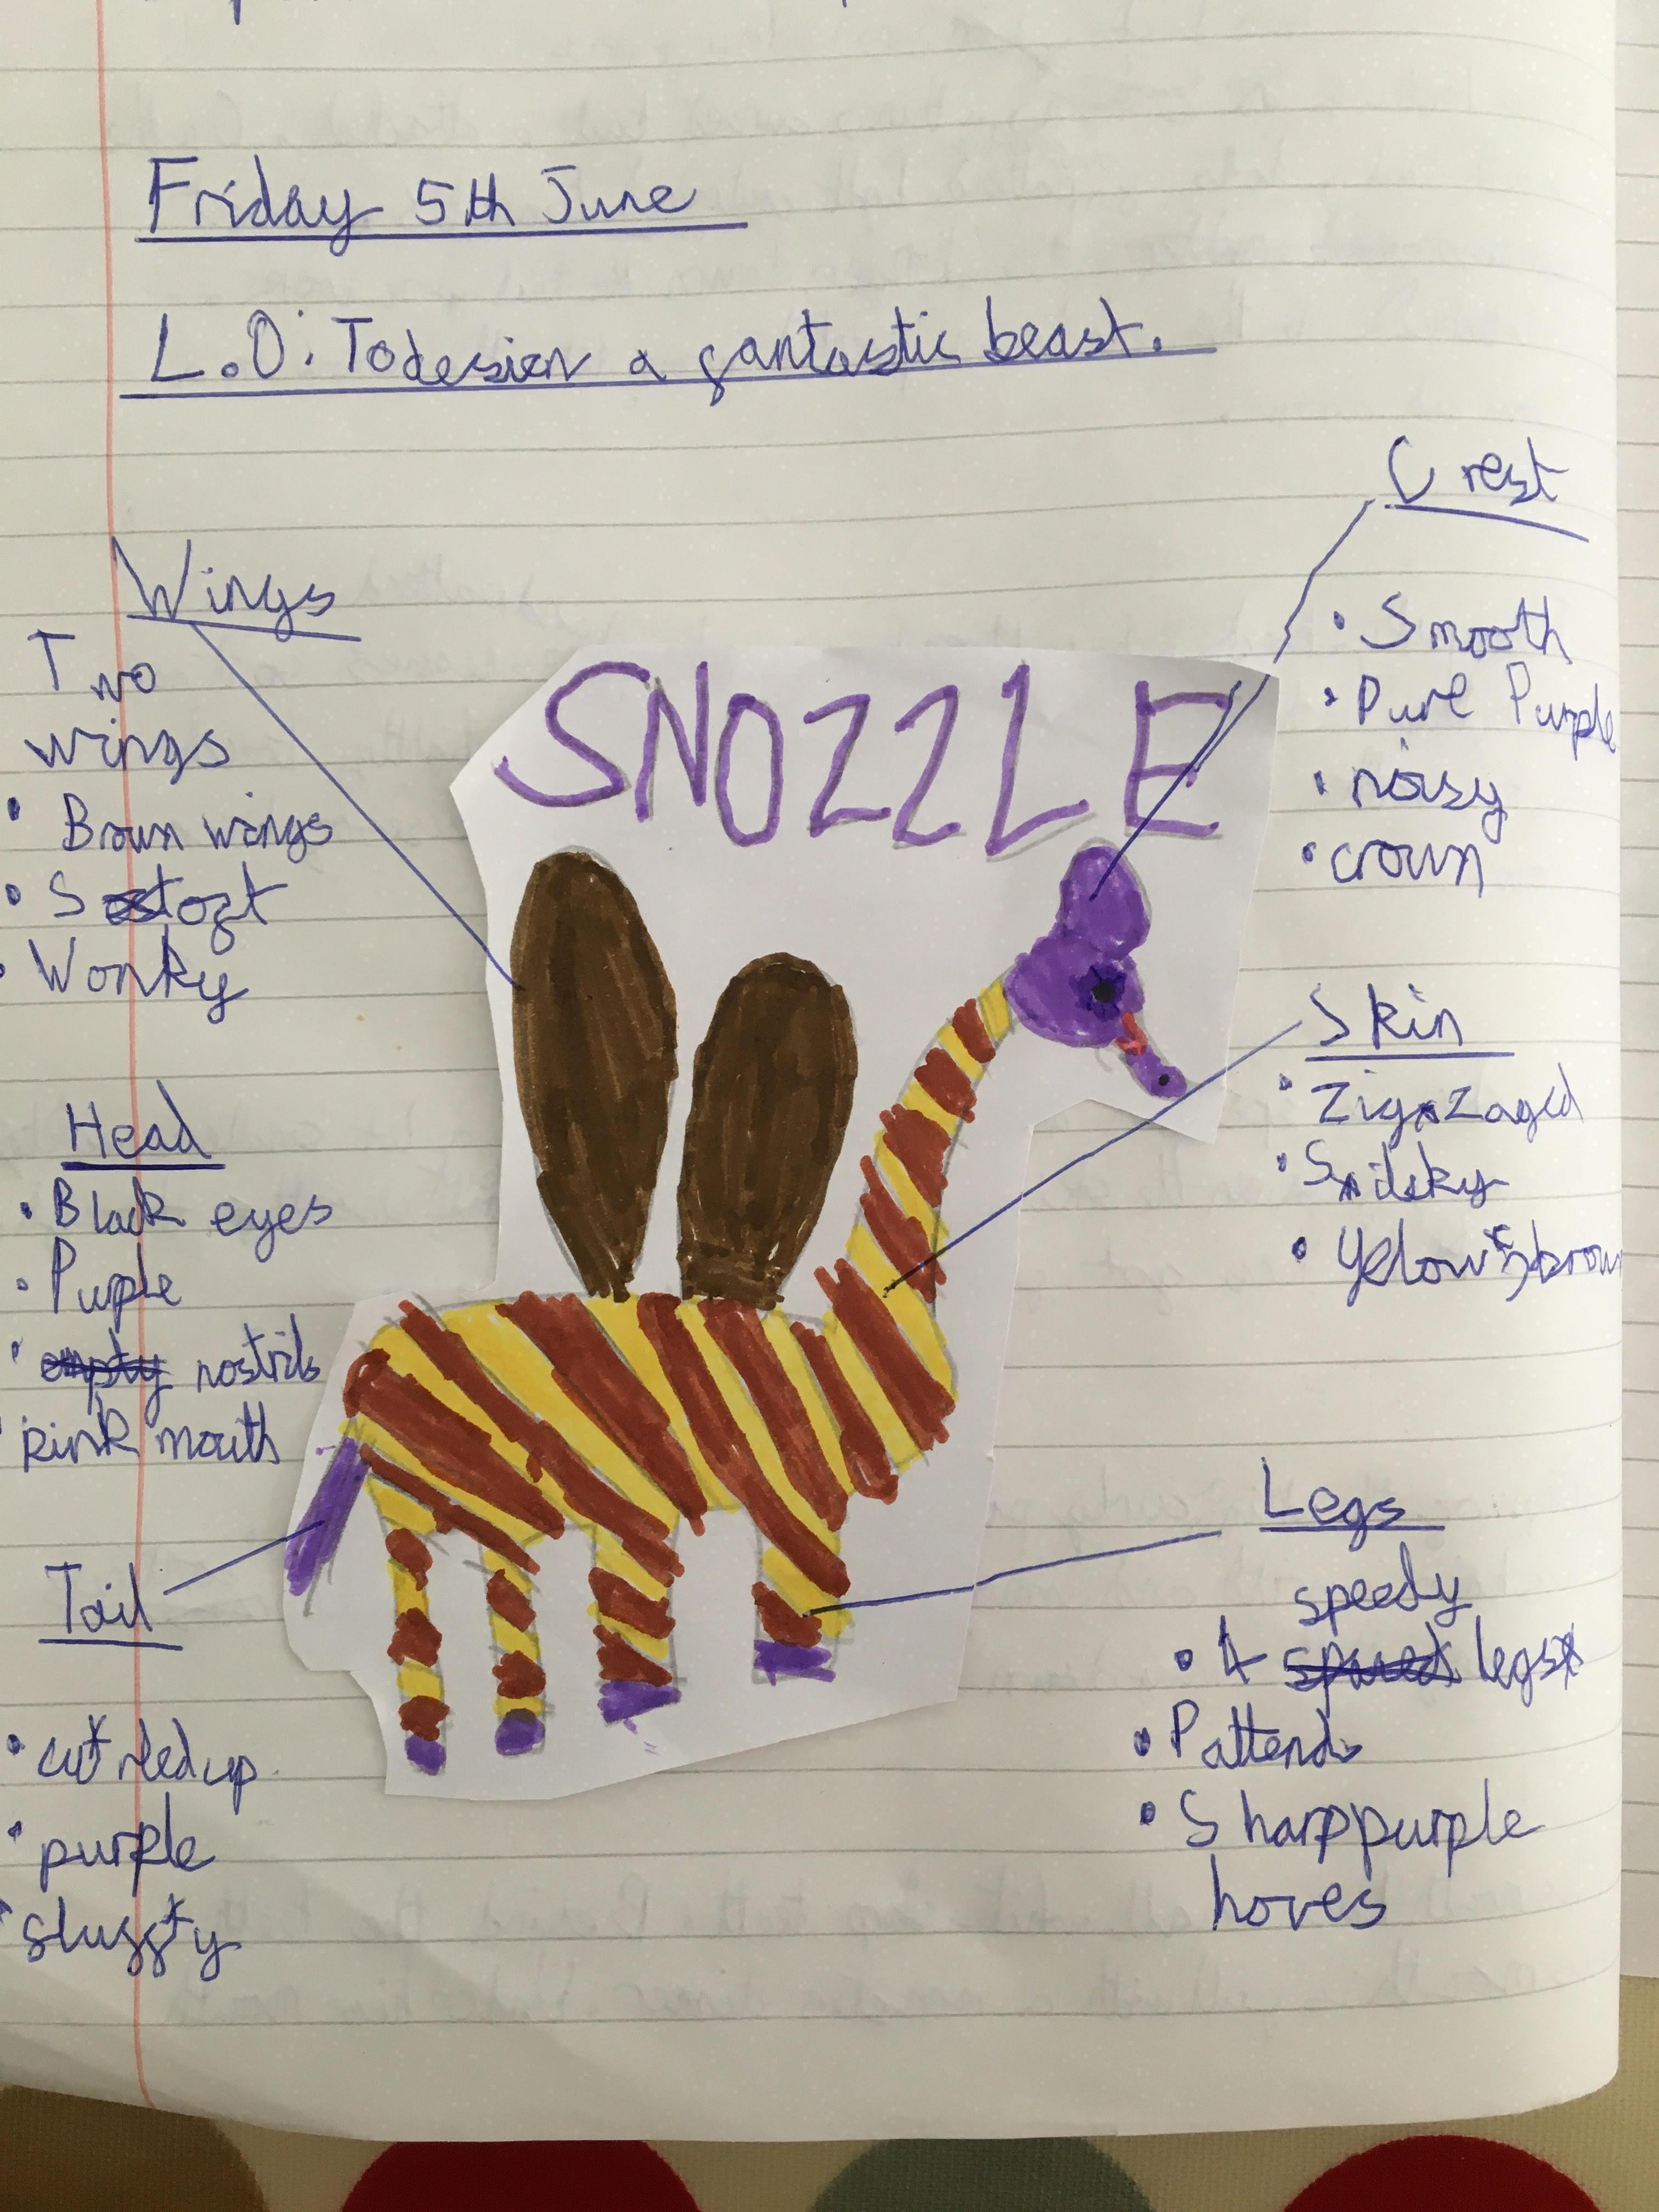 Friday 5th June
L.O: To design a fantastic beast.
Wings
Two
wings
• Brown wings
• Soft
• Wonky
SNOZZLE
Crest
• Smooth
• Pure Purple
• noisy
• crown
Head
• Black eyes
• Puple
• nostrils
pink mouth
Skin
• Zigzaged
• Silky
• Yelow & brown
Tail
• curled up
• purple
Legs
speedy
• 4 legs
• Pattend
• Sharp purple
hoves